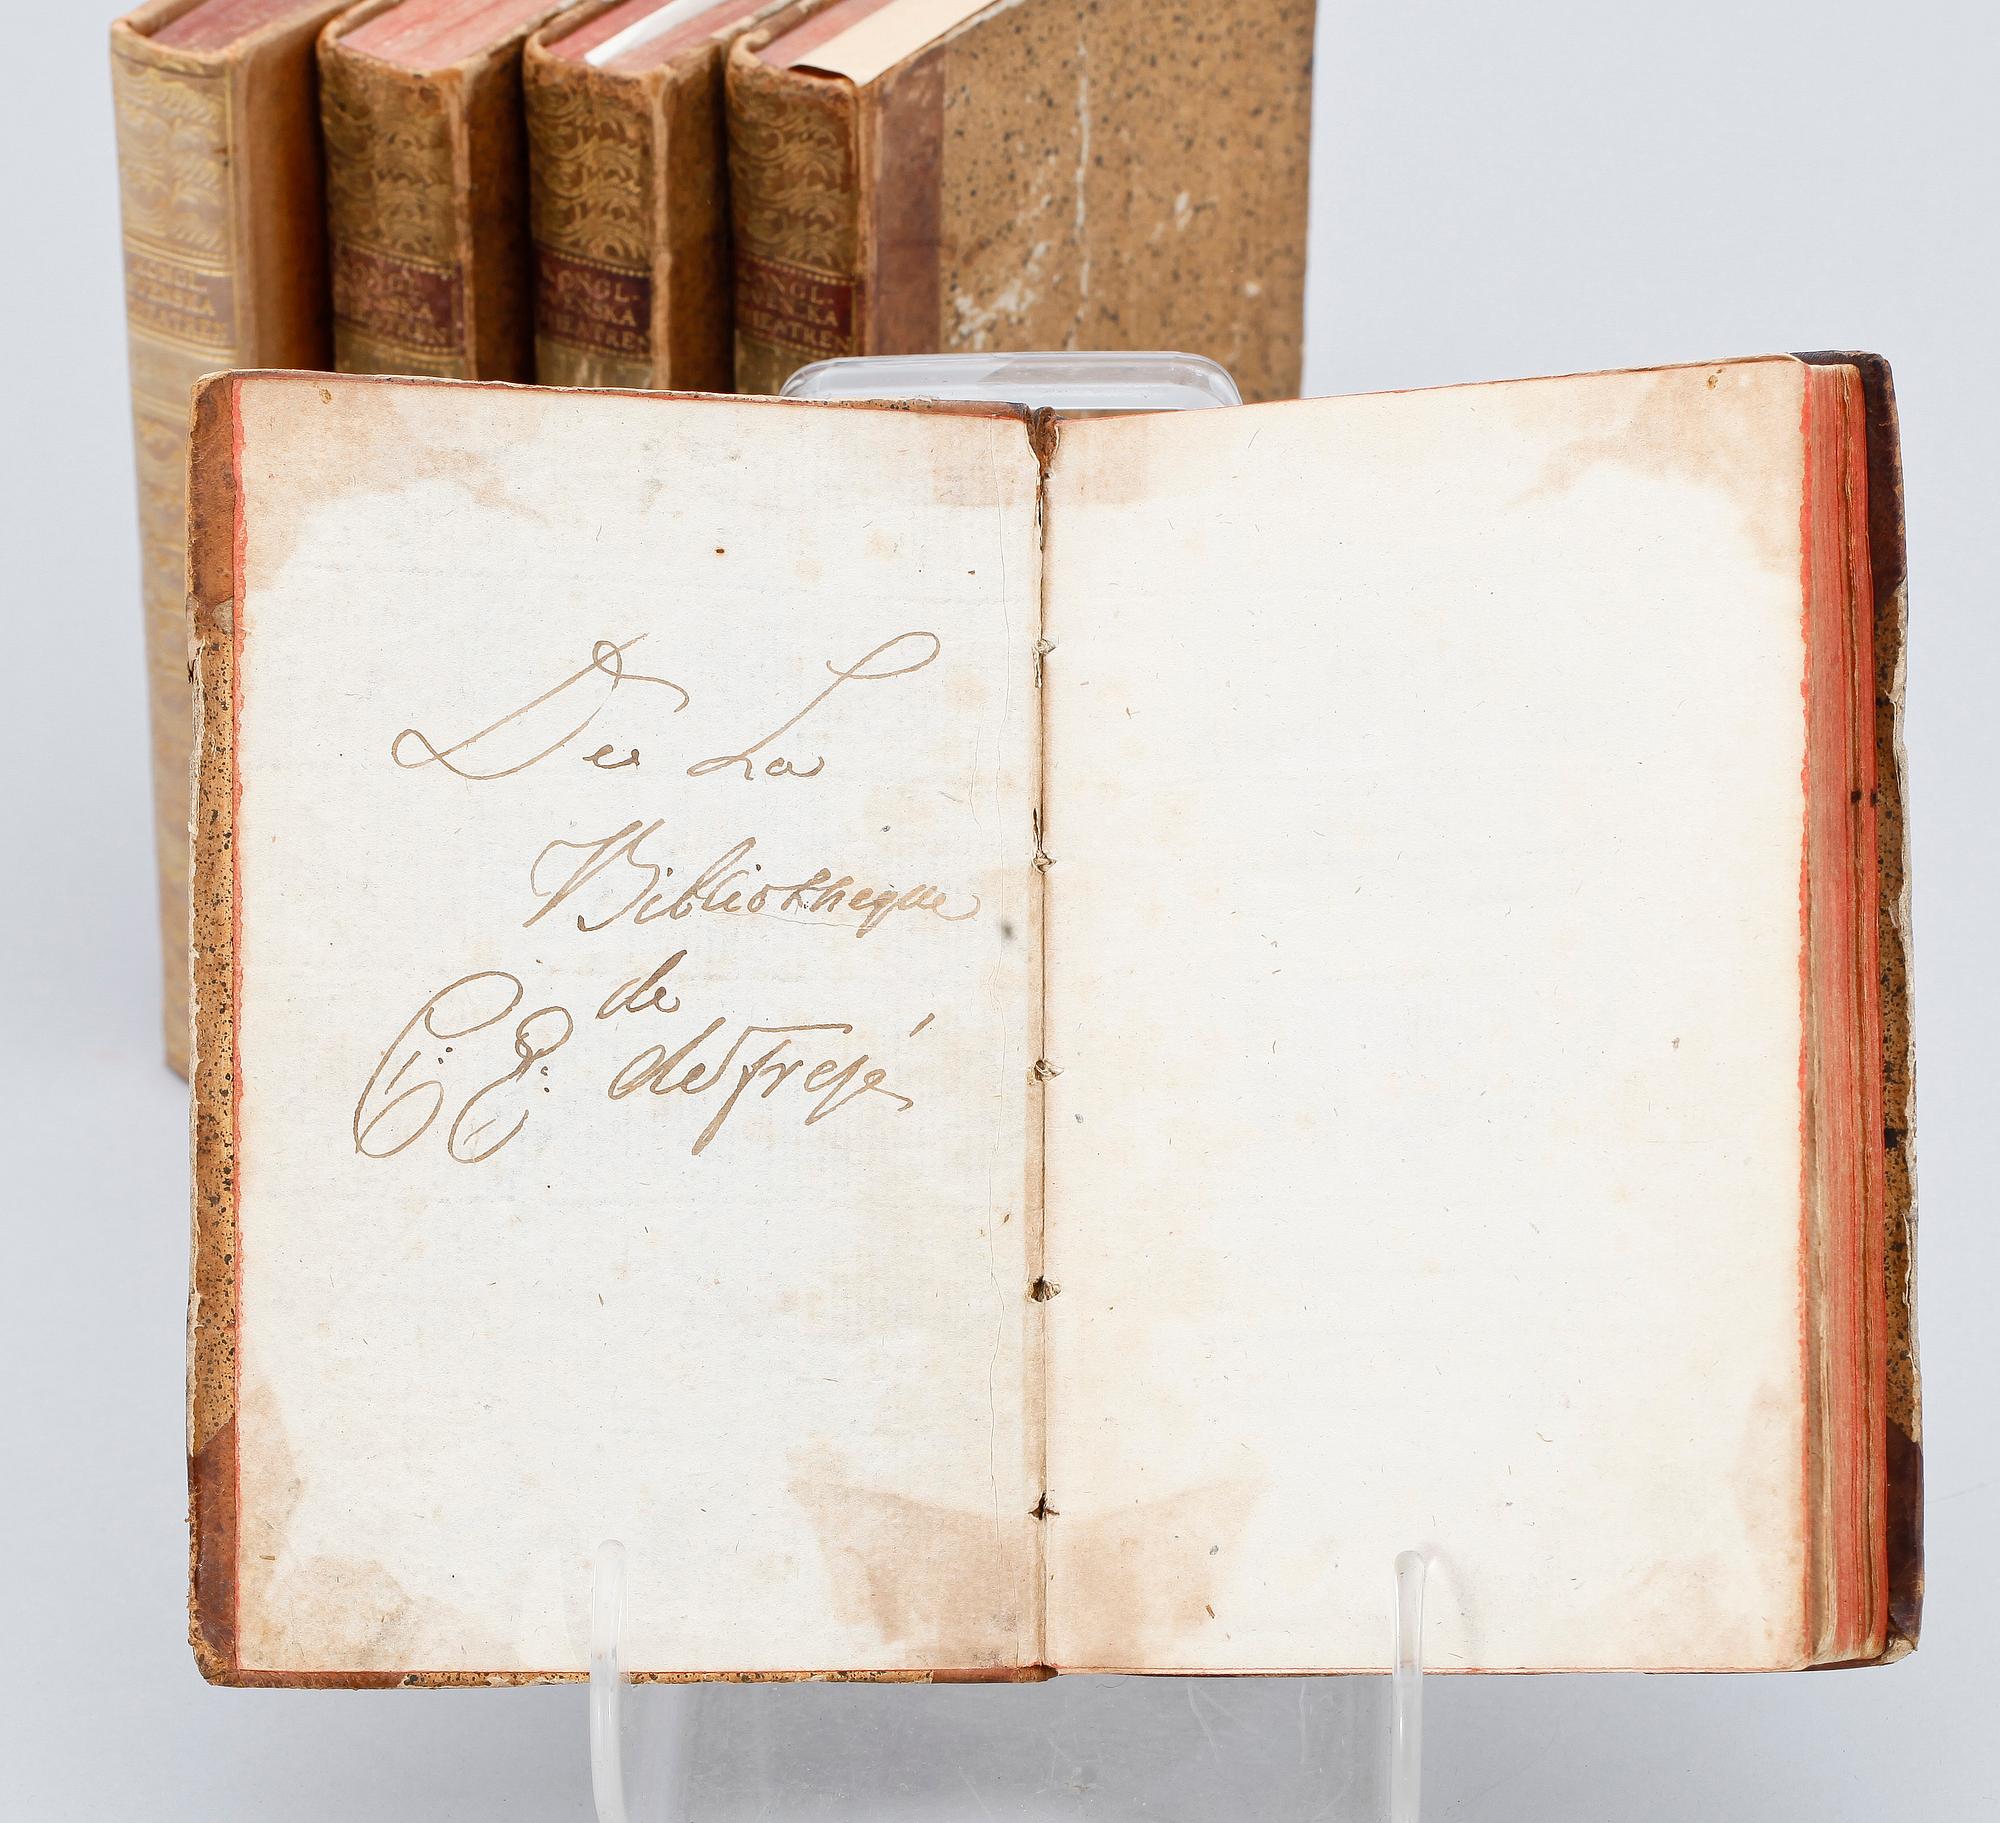 KONGL.
SVENSKA
THEATREN
KONGL.
SVENSKA
THEATREN
KONGL.
SVENSKA
THEATREN
KONGL.
SVENSKA
THEATREN
De La
Bibliotheque
de
C: E: de Frese